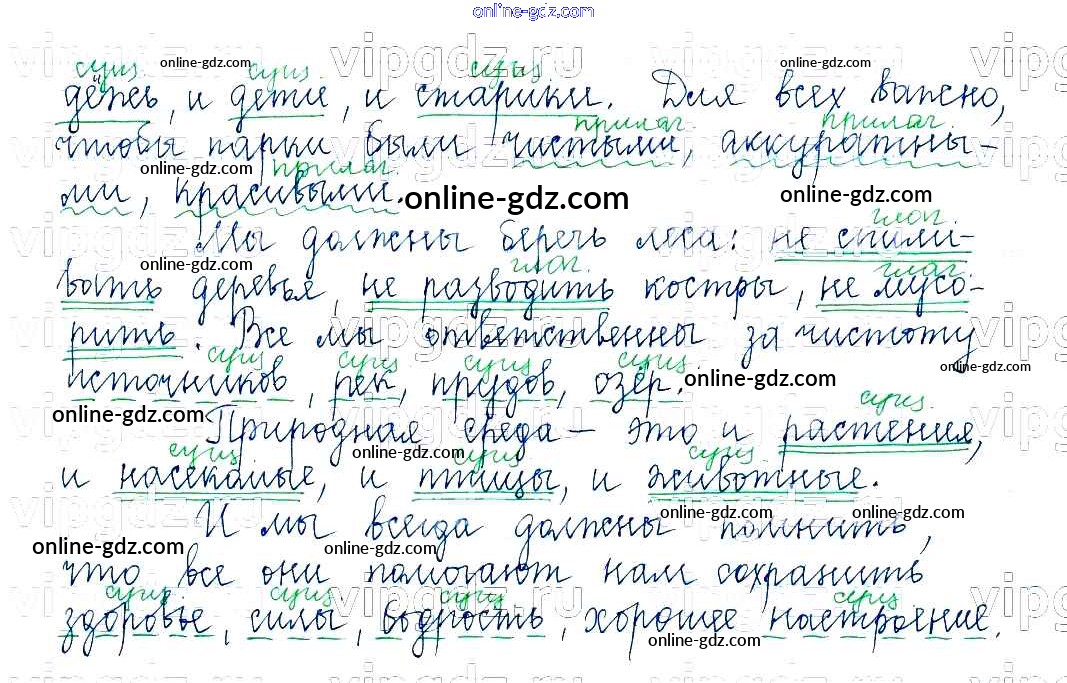 online-gdz.com
vipgdz.ru vipgdz.ru vipgdz.ru vipg
сущ. online-gdz.com сущ. сущ online-gdz.com
дёжь, и дети, и старики. Для всех важно,
прилаг. прилаг.
чтобы парки были чистыми, аккуратны-
online-gdz.com прилаг. online-gdz.com
ми, красивыми. online-gdz.com
глаг.
Мы должны беречь леса: не спили-
online-gdz.com глаг. глаг.
вать деревья, не разводить костры, не мусо-
рить. Все мы ответственны за чистоту
сущ сущ сущ сущ online-gdz.com
источников, рек, прудов, озёр. online-gdz.com
online-gdz.com сущ
Природная среда – это и растения,
сущ online-gdz.com сущ сущ
и насекомые, и птицы, и животные.
online-gdz.com online-gdz.com
И мы всегда должны помнить,
online-gdz.com online-gdz.com
что все они помогают нам сохранить
сущ сущ сущ сущ
здоровье, силы, бодрость, хорошее настроение.
online-gdz.com online-gdz.com